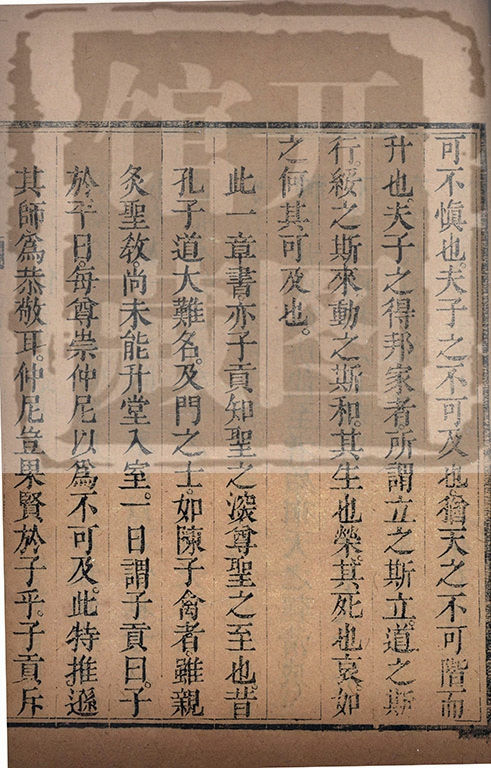 可不慎也。夫子之不可及也。猶天之不可階而
升也。夫子之得邦家者。所謂立之斯立。道之斯
行。綏之斯來。動之斯和。其生也榮。其死也哀。如
之何其可及也。
此一章書。亦子貢知聖之深。尊聖之至也。昔
孔子道大難名。及門之士。如陳子禽者。雖親
炙聖教。尚未能升堂入室。一日謂子貢曰。子
於平日。每尊崇仲尼。以為不可及。此特推遜
其師為恭敬耳。仲尼豈果賢於子乎。子貢斥